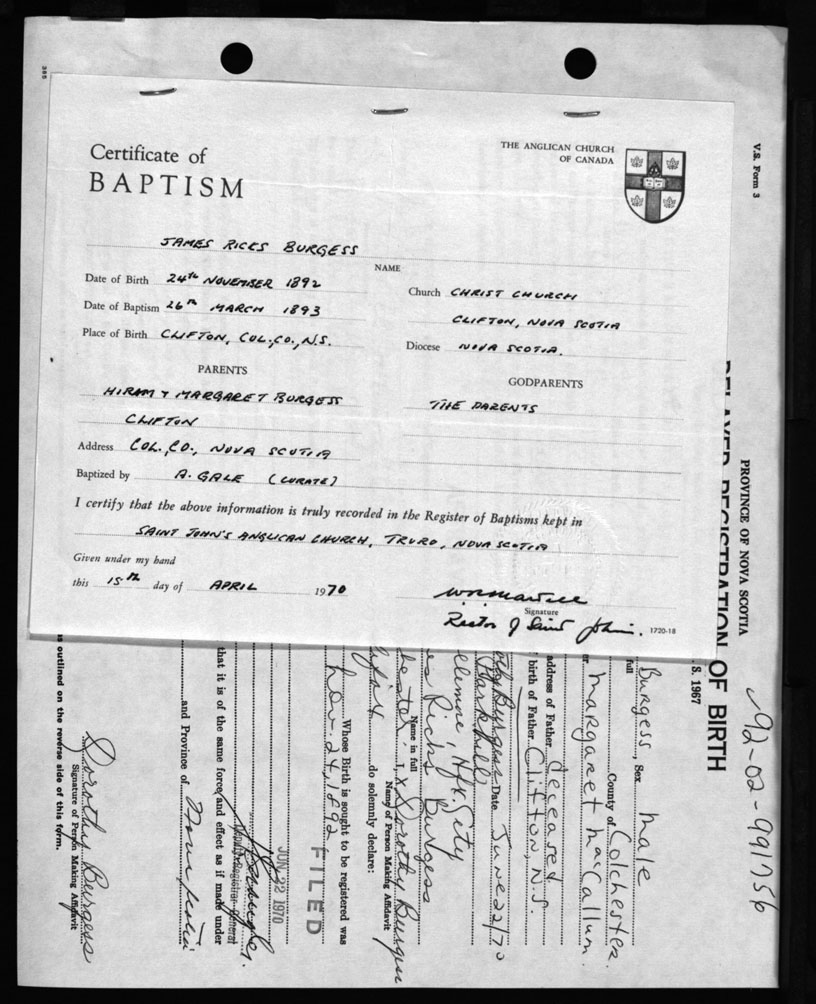 Certificate of
BAPTISM
THE ANGLICAN CHURCH
OF CANADA
JAMES RICKS BURGESS
NAME
Date of Birth 24th NOVEMBER 1892
Date of Baptism 26th MARCH 1893
Place of Birth CLIFTON, COL., CO., N.S.
Church CHRIST CHURCH
CLIFTON, NOVA SCOTIA
Diocese NOVA SCOTIA.
PARENTS
HIRAM & MARGARET BURGESS
CLIFTON
Address COL., CO., NOVA SCOTIA
Baptized by A. GALE (CURATE)
GODPARENTS
THE PARENTS
I certify that the above information is truly recorded in the Register of Baptisms kept in
SAINT JOHN'S ANGLICAN CHURCH, TRURO, NOVA SCOTIA
Given under my hand
this 15th day of APRIL 1970
Signature
Rector of Saint John's.
1720-18
385
V.S. Form 3
PROVINCE OF NOVA SCOTIA
DELAYED REGISTRATION OF BIRTH
S. 1967
92-02-991756
full Burgess, Sex Male
County of Colchester.
er. Margaret MacCallum.
address of Father deceased
birth of Father Clifton, N.S.
Burgess Date June 22/70
Park Hill
Hfx. City
Ricks Burgess
Name in full
I, X Dorothy Burgess
Name of Person Making Affidavit
do solemnly declare:
Whose Birth is sought to be registered was
Nov. 24, 1892
FILED
JUN 22 1970
Deputy Registrar General
that it is of the same force and effect as if made under
and Province of Nova Scotia
Dorothy Burgess
Signature of Person Making Affidavit
as outlined on the reverse side of this form.